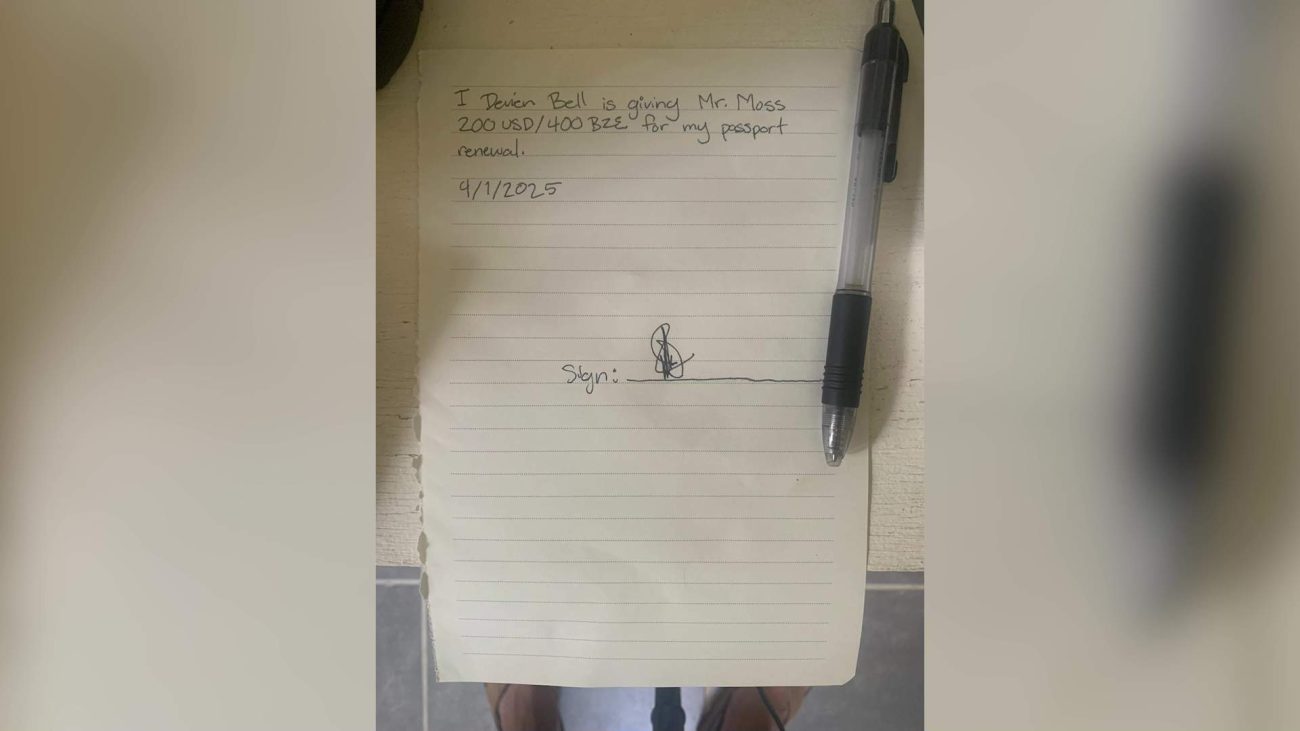 I Devien Bell is giving Mr. Moss
200 USD/400 BZE for my passport
renewal.
9/1/2025
Sign: